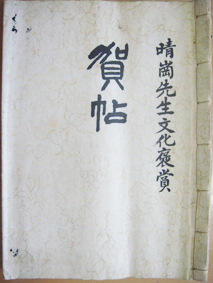 晴崗先生文化褒賞
賀帖